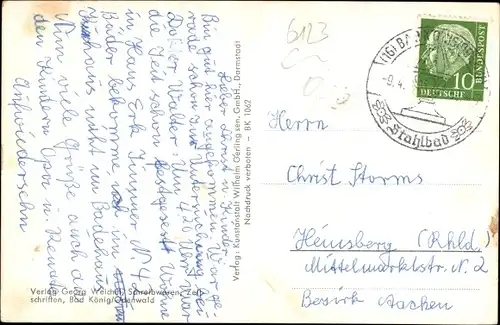 Lieber Christ u. Kinder
Bin gut hier angekommen. War ge-
rade schon zur Untersuchung bei
Doktor Walter. Um 4.20 Uhr war
die Zeit schon festgesetzt. Wohne
im Haus Erk Zimmer N. 42
Bäder bekomme ich im
nicht im Badehaus
Nun viele Grüße auch an
den Kindern Opa u. Renate
Aufwiedersehn
Verlag Georg Weichel, Schreibwaren, Zeit-
schriften, Bad König/Odenwald
Verlag: Kunstanstalt Wilhelm Gerling sen. GmbH., Darmstadt
Nachdruck verboten - BK 1062
6123
(16) BAD KÖNIG
Stahlbad
DEUTSCHE
BUNDESPOST
10
Herrn
Christ Storms
Heinsberg (Rhld.)
Mittelmarktstr. N. 2
Bezirk Aachen